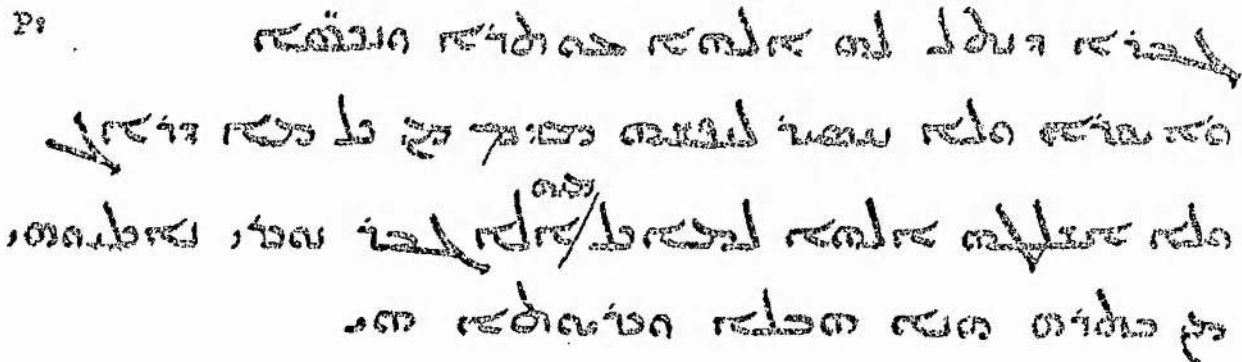 P:
ܓܒܪܐ ܕܢܬܠ ܠܗ ܐܠܗܐ ܥܘܬܪܐ ܘܢܟ̈ܣܐ
ܘܐܝܩܪܐ ܘܠܐ ܚܣܝܪ ܠܢܦܫܗ ܡܢ ܟܠ ܡܐ ܕܪܐܓ
ܘܠܐ ܐܫܠܛܗ ܐܠܗܐ ܠܡܐܟܠ ܡܢܗ ܐܠܐ ܓܒܪ ܢܘܟܪܝ ܢܐܟܠܝܘܗܝ
ܡܢ ܒܬܪܗ ܗܢܐ ܗܒܠܐ ܘܟܪܝܗܘܬܐ ܗܝ.